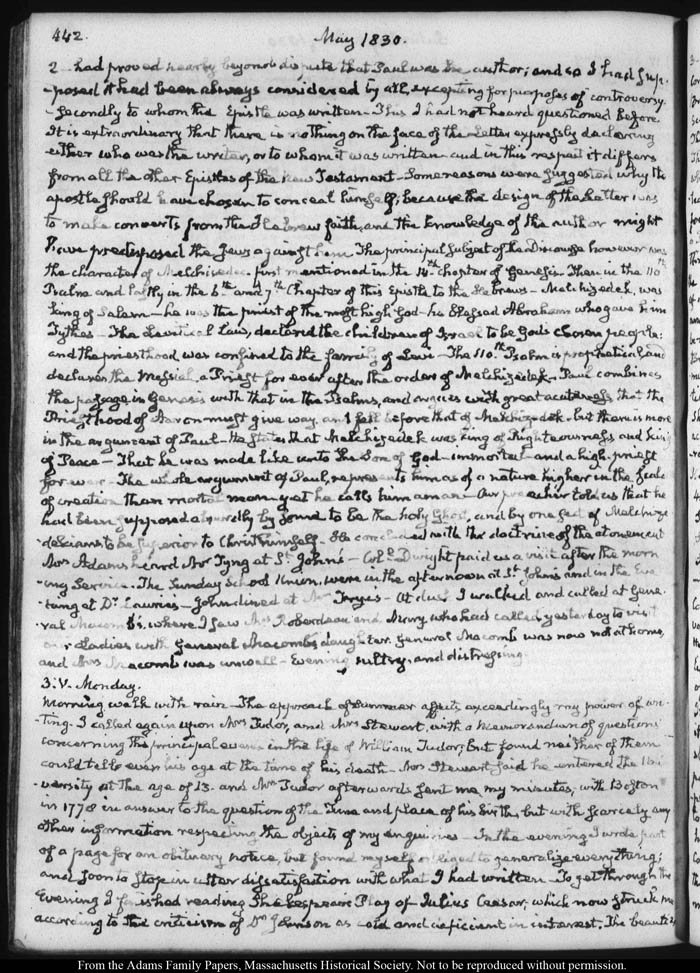 442.
May 1830.
2 had proved nearly beyond dispute that Paul was the author; and so I had sup-
-posed it had been always considered by all, excepting for purposes of controversy.
-Secondly to whom the Epistle was written- This I had not heard questioned before
It is extraordinary that there is nothing on the face of the Letter expressly declaring
either who was the writer, or to whom it was written- and in this respect it differs
from all the other Epistles of the New Testament- Some reasons were suggested why the
apostle should have chosen to conceal himself; because the design of the Letter was
to make converts from the Hebrew faith, and the knowledge of the author might
have predisposed the Jews against him. The principal subject of the Discourse however was
the character of Melchisedec- first mentioned in the 14th Chapter of Genesis. Then in the 110th
Psalm and lastly in the 6th and 7th Chapter of this Epistle to the Hebrews- Melchizedek was
king of Salem- he was the priest of the most high God- he blessed Abraham who gave him
Tythes- The Levitical Law, declared the children of Israel to be God's chosen people:
and the priesthood was confined to the family of Levi- The 110.th Psalm is prophetical and
declares the Messiah, a Priest for ever after the order of Melchizedek- Paul combines
the passage in Genesis with that in the Psalms, and argues with great acuteness that the
Priesthood of Aaron must give way and fall before that of Melchizedek- but there is more
in the argument of Paul- He states that Melchizedek was King of Righteousness and King
of Peace- That he was made like unto the Son of God- immortal- and a high-priest
for ever- The whole argument of Paul, represents him as of a nature higher in the scale
of creation than mortal man- yet he calls him a man- Our preacher told us that he
had been supposed absurdly by some to be the holy Ghost, and by one sect of Melchize-
-deksians to be superior to Christ himself- He concluded with the doctrine of the atonement
Mrs Adams heard Mr Tyng at St. John's- Coll. Dwight paid us a visit after the morn-
-ing Service. The Sunday School Union, were in the afternoon at St. Johns and in the Eve-
-ning at Dr. Lauries- John dined at Mr Frye's- At dusk I walked and called at Gene-
-ral Macomb's, where I saw Mrs Roberdeau and Mary, who had called yesterday to visit
our Ladies with General Macomb's daughter. General Macomb was now not at home,
and Mrs Macomb was unwell- Evening sultry, and distressing.
3. V. Monday.
Morning walk with rain- The approach of Summer affects exceedingly my power of wri-
-ting- I called again upon Mrs Tudor, and Mrs Stewart, with a Memorandum of questions
concerning the principal events in the life of William Tudor; but found neither of them
could tell even his age at the time of his death- Mrs Stewart said he entered the Uni-
-versity at the age of 13- and Mrs Tudor afterwards sent me my minutes, with Boston
in 1778 in answer to the question of the Time and place of his birth, but with scarcely any
other information respecting the objects of my enquiries- In the evening I wrote part
of a page for an obituary notice, but found myself obliged to generalize every thing;
and soon to stop in utter dissatisfaction with what I had written- To get through the
Evening I finished reading Shakespeare's Play of Julius Caesar, which now struck me
according to the criticism of Dr Johnson as cold and deficient in interest. The beauties
From the Adams Family Papers, Massachusetts Historical Society. Not to be reproduced without permission.